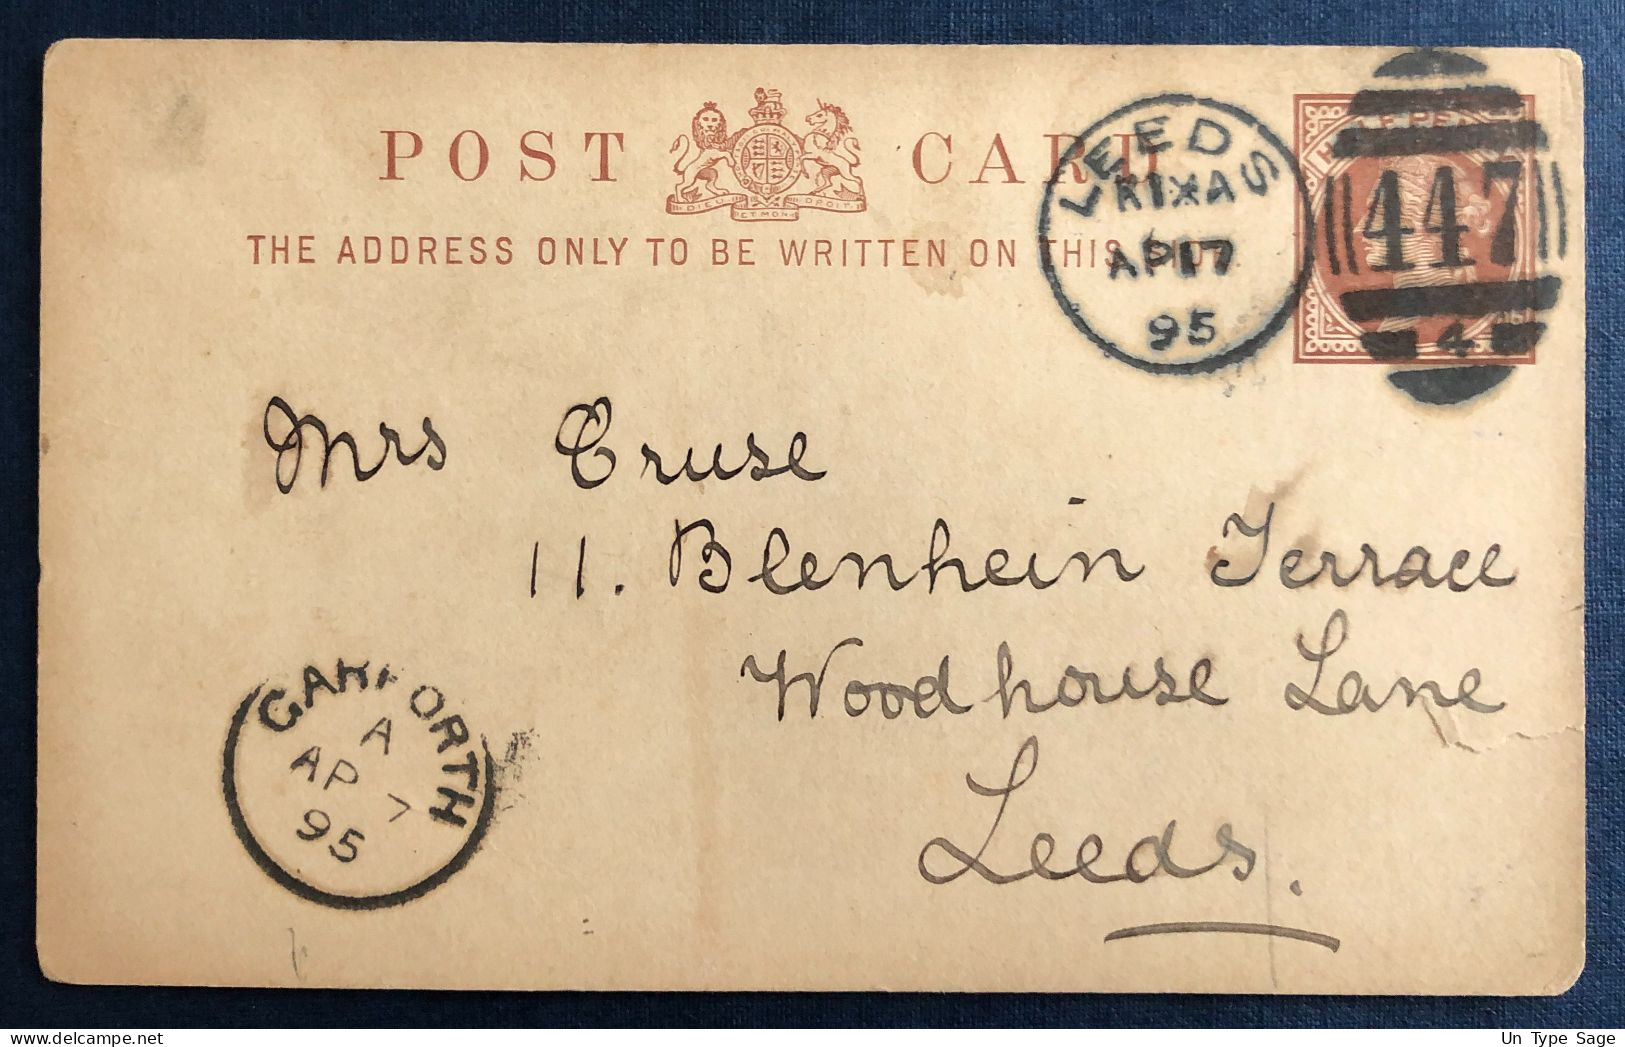 POST CARD
DIEU ET MON DROIT
THE ADDRESS ONLY TO BE WRITTEN ON THIS
LEEDS
AP 17
95
447
4
Mrs Cruse
11. Blenhein Terrace
Woodhouse Lane
Leeds.
GARFORTH
A
AP 7
95
Un Type Sage